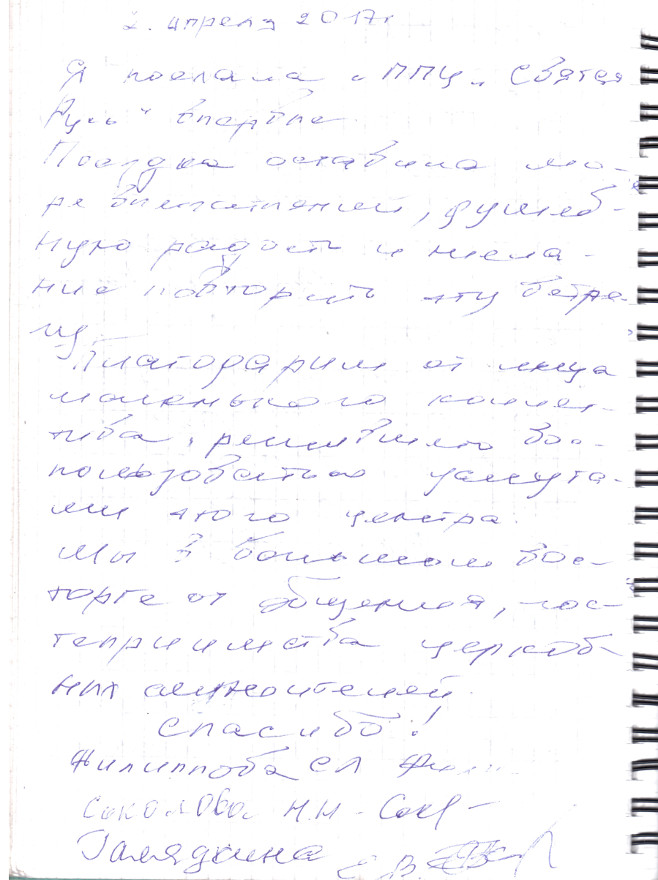 2. апреля 2017г
Я поехала с ППЦ „Святая
Русь" впервые.
Поездка оставила мо-
ре впечатлений, душев-
ную радость и жела-
ние повторить эту встре-
чу.
Благодарим от лица
маленького коллек-
тива, решившего вос-
пользоваться услуга-
ми этого центра.
Мы в большом вос-
торге от общения, гос-
теприимства церков-
ных служителей.
Спасибо!
Филиппова СЛ
Соколова Н.Н-
Галядкина Е.В.